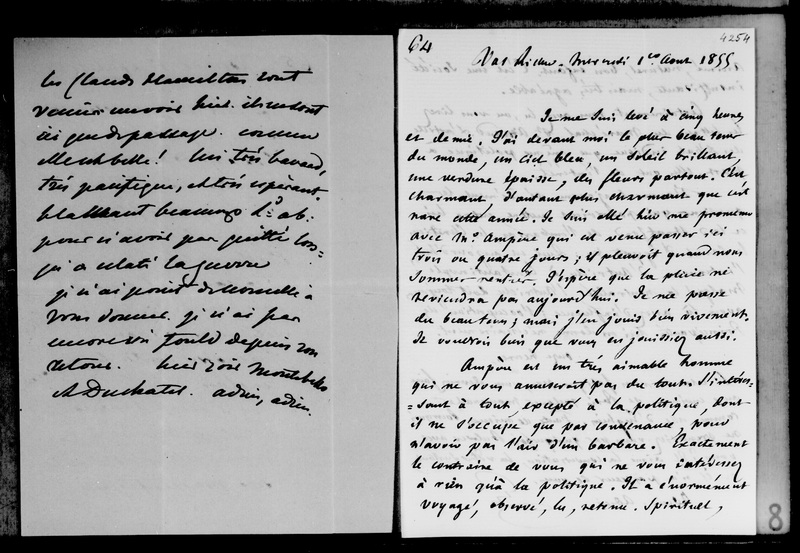 les Clauds Hamilton sont
venus me voir hier. ils ne sont
ici qu'en passage. comme
Meckbette! lui très bavard,
très pacifique, et très espérant.
blâmant beaucoup L. ab.
pour n'avoir pas quitté lors=
qu'a éclaté la guerre
je n'ai point de nouvelle à
vous donner. je n'ai pas
encore vu Fould depuis son
retour. hier soir Montebello
et Duchatel. adieu, adieu.
64
4254
Val Richer. Mercredi 1er Aout 1855
Je me suis levé à cinq heures
et demie. J'ai devant moi le plus beau jour
du monde, un ciel bleu, un soleil brillant,
une verdure épaisse, des fleurs partout. C'est
charmant, d'autant plus charmant que c'est
rare cette année. Je suis allé hier me promener
avec Mr. Ampère qui est venu passer ici
trois ou quatre jours ; il pleuvoit quand nous
sommes rentrés. J'espère que la pluie ne
reviendra pas aujourd'hui. Je me passe
du beau tems ; mais j'en jouis bien vivement.
Je voudrois bien que vous en jouissiez aussi.
Ampère est un très aimable homme
qui ne vous amuseroit pas du tout. S'intéres=
=sant à tout, excepté à la politique, dont
il ne s'occupe que par condenance, pour
n'avoir pas l'air d'un barbare. Exactement
le contraire de vous qui ne vous intéressez
à rien qu'à la politique. Il a énormément
voyagé, observé, lu, retenu. Spirituel,
8